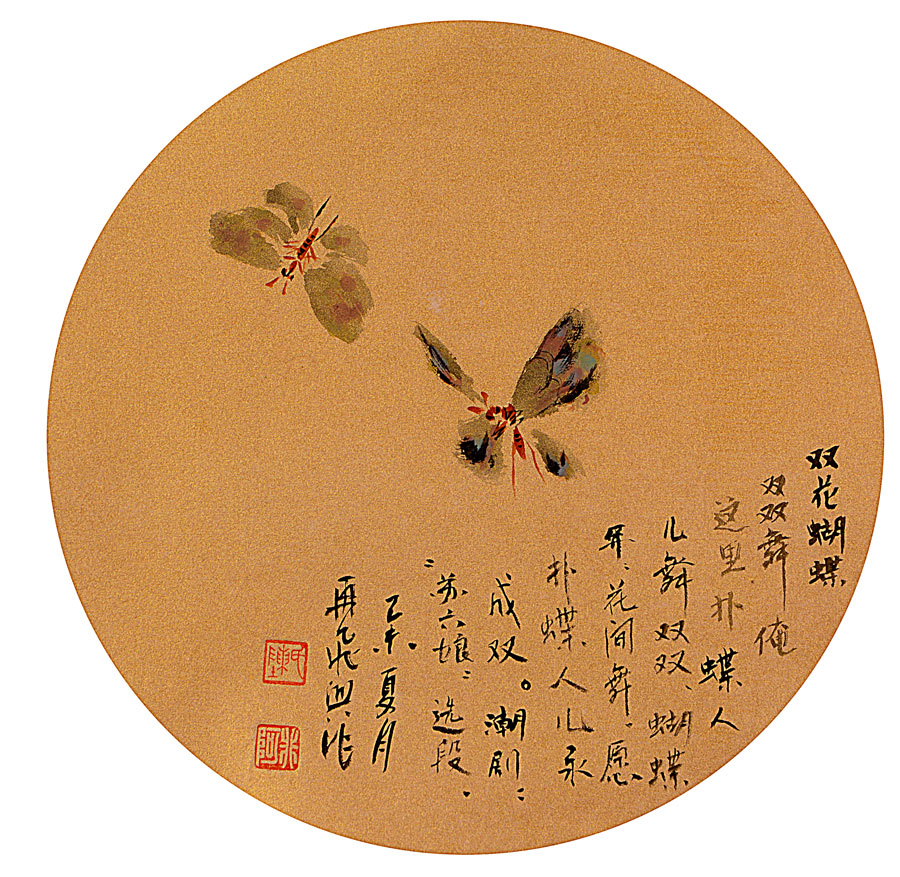 双花蝴蝶
双双舞，俺
这里扑蝶人
儿舞双双、蝴蝶
花间舞。愿
扑蝶人儿永
成双。潮剧：
"苏六娘"选段．
乙未夏月
陈氏
阿米